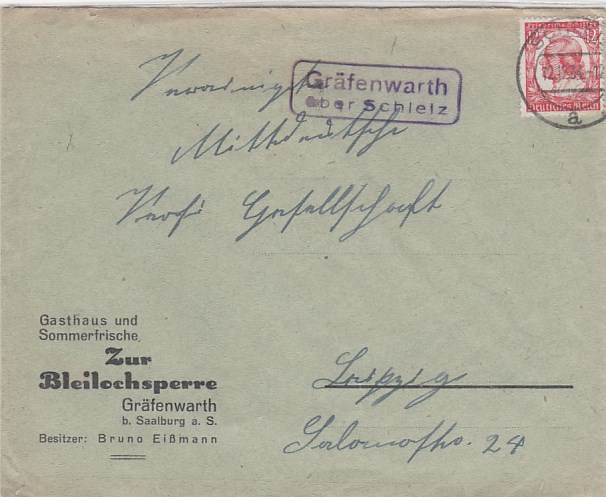 Gräfenwarth
über Schleiz
12
Deutsches Reich
a
Mitteldeutsche
Gesellschaft
Leipzig
Salomostr. 24
Gasthaus und
Sommerfrische
Zur
Bleilochsperre
Gräfenwarth
b. Saalburg a. S.
Besitzer: Bruno Eißmann